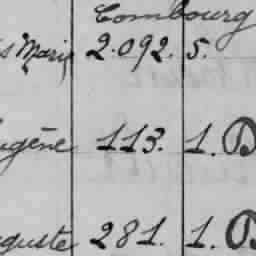 Combourg
s Marie 2.092. 5.
ugène 113. 1. B
uguste 281. 1. B